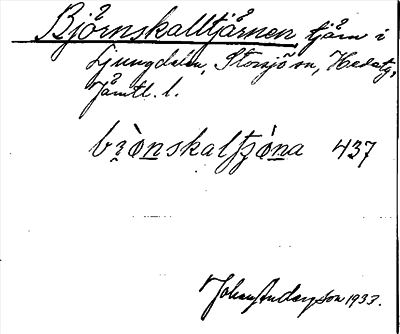 Björnskalltjärnen tjärn i
Ljungdalen, Storsjö sn, Hede tg,
Jämtl. l.
brònskaltȷ̀óna 437
Johan Anderson 1933.